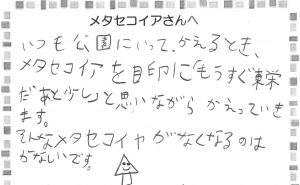 メタセコイアさんへ
いつも公園にいって、かえるとき、
メタセコイアを目印に「もうすぐ東栄
だあと少し」と思いながら かえっていき
ます。
そんなメタセコイヤ がなくなるのは
かないいです。